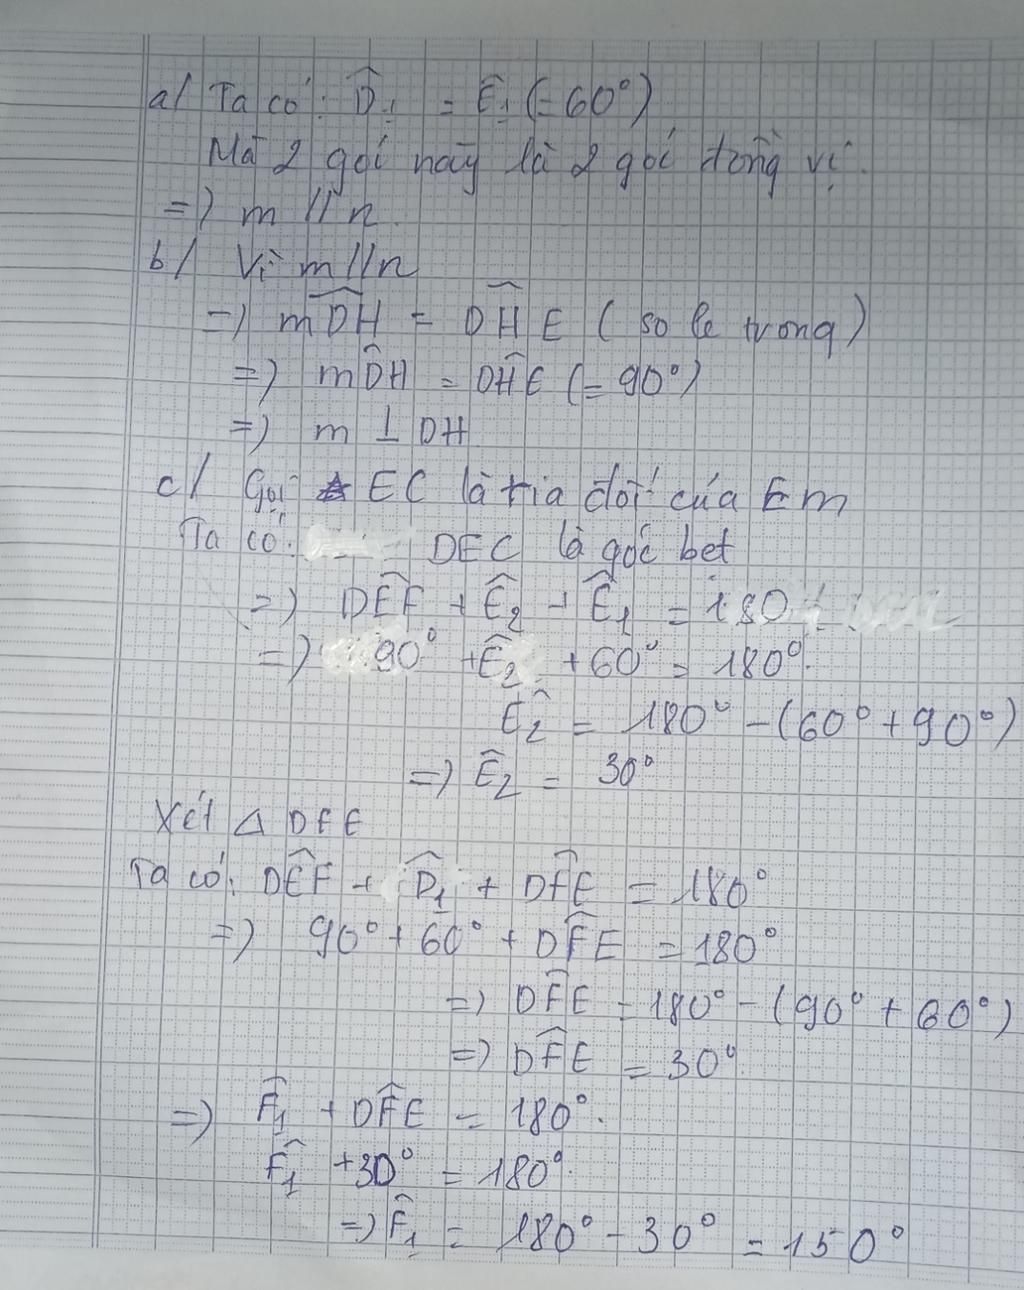 a/ Ta có: D̂₁ = Ê₁ (= 60°)
Mà 2 gói này là 2 gói đồng vị.
=) m // n.
b/ Vì m//n
=) mD̂H = DĤE (so le trong)
=) mD̂H = DĤE (= 90°)
=) m ⊥ DH
c/ Gọi EC là tia đối của Em
Ta có: DEC là góc bet
=) DÊF + Ê₂ + Ê₁ = 180
=) 90° + Ê₂ + 60° = 180°.
Ê₂ = 180° - (60° + 90°)
=) Ê₂ = 30°
Xét Δ DFE
Ta có: DÊF + D̂₁ + DF̂E = 180°
=) 90° + 60° + DF̂E = 180°
=) DF̂E = 180° - (90° + 60°)
=) DF̂E = 30°
=) F̂₁ + DF̂E = 180°.
F̂₁ + 30° = 180°.
=) F̂₁ = 180° - 30° = 150°